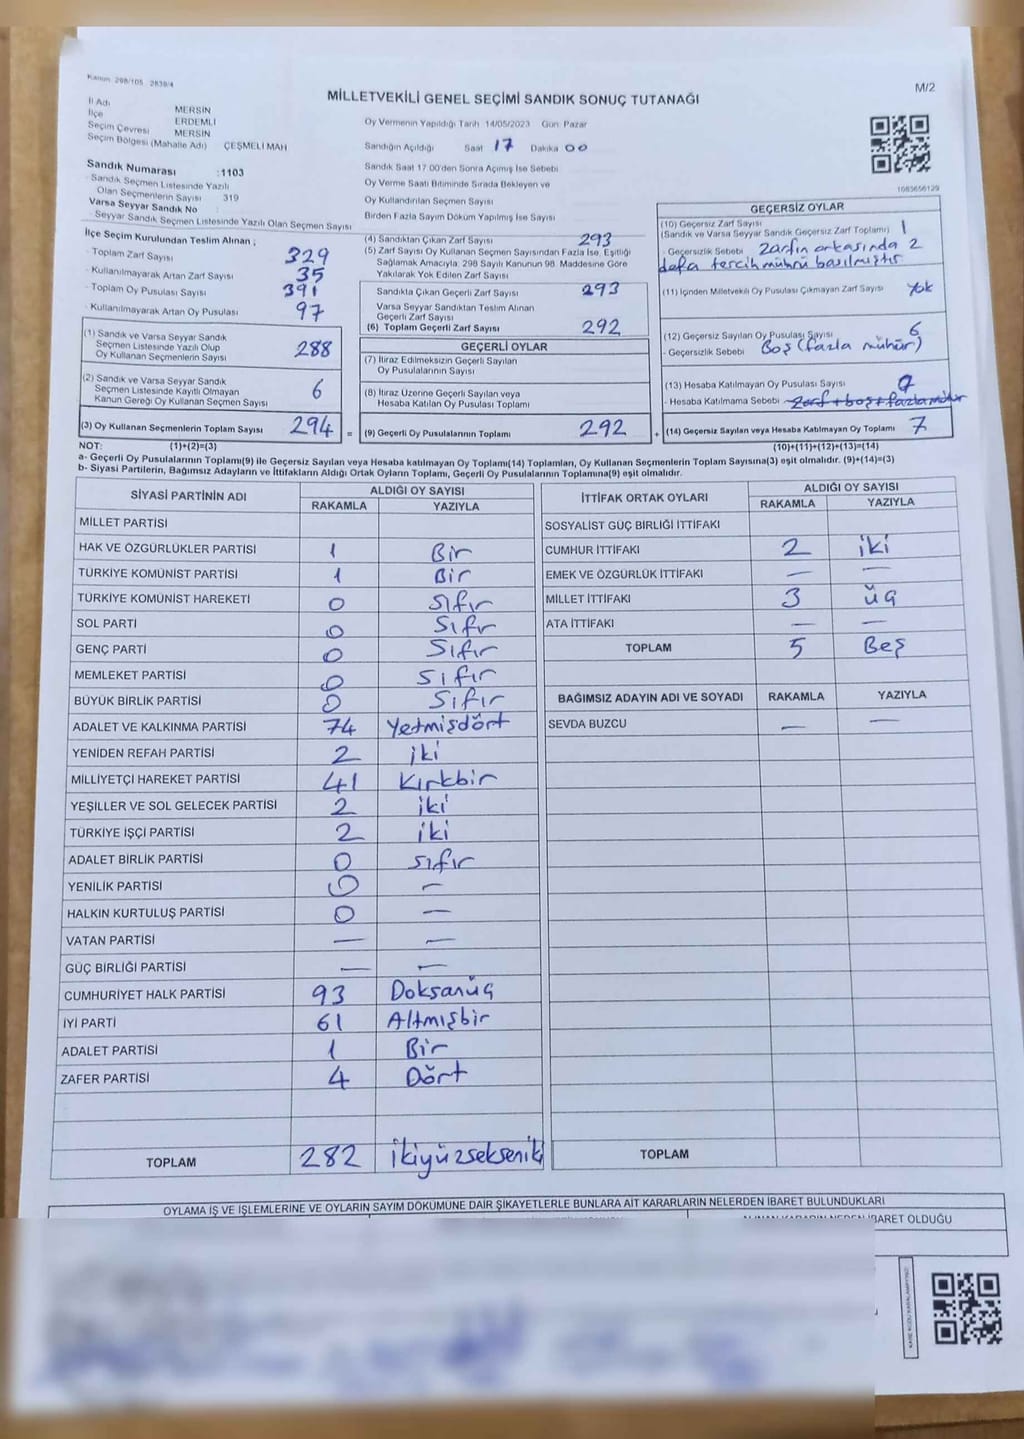 Kanun 298/105 2839/4
M/2
MİLLETVEKİLİ GENEL SEÇİMİ SANDIK SONUÇ TUTANAĞI
İl Adı MERSİN
İlçe ERDEMLİ
Seçim Çevresi MERSİN
Seçim Bölgesi (Mahalle Adı) ÇEŞMELİ MAH
Sandık Numarası :1103
Sandık Seçmen Listesinde Yazılı
Olan Seçmenlerin Sayısı : 319
Varsa Seyyar Sandık No :
Seyyar Sandık Seçmen Listesinde Yazılı Olan Seçmen Sayısı
Oy Vermenin Yapıldığı Tarih 14/05/2023 Gün: Pazar
Sandığın Açıldığı Saat 17 Dakika 00
Sandık Saat 17.00'den Sonra Açımış İse Sebebi
Oy Verme Saati Bitiminde Sırada Bekleyen ve
Oy Kullandırılan Seçmen Sayısı
Birden Fazla Sayım Döküm Yapılmış İse Sayısı
1083656129
İlçe Seçim Kurulundan Teslim Alınan ;
- Toplam Zarf Sayısı 329
- Kullanılmayarak Artan Zarf Sayısı 35
- Toplam Oy Pusulası Sayısı 391
- Kullanılmayarak Artan Oy Pusulası 97
(1) Sandık ve Varsa Seyyar Sandık
Seçmen Listesinde Yazılı Olup
Oy Kullanan Seçmenlerin Sayısı 288
(2) Sandık ve Varsa Seyyar Sandık
Seçmen Listesinde Kayıtlı Olmayan
Kanun Gereği Oy Kullanan Seçmen Sayısı 6
(3) Oy Kullanan Seçmenlerin Toplam Sayısı 294 =
(4) Sandıktan Çıkan Zarf Sayısı 293
(5) Zarf Sayısı Oy Kullanan Seçmen Sayısından Fazla İse, Eşitliği
Sağlamak Amacıyla: 298 Sayılı Kanunun 98. Maddesine Göre
Yakılarak Yok Edilen Zarf Sayısı
Sandıkta Çıkan Geçerli Zarf Sayısı 293
Varsa Seyyar Sandıktan Teslim Alınan
Geçerli Zarf Sayısı
(6) Toplam Geçerli Zarf Sayısı 292
GEÇERLİ OYLAR
(7) İtiraz Edilmeksizin Geçerli Sayılan
Oy Pusulalarının Sayısı
(8) İtiraz Üzerine Geçerli Sayılan veya
Hesaba Katılan Oy Pusulası Toplamı
(9) Geçerli Oy Pusulalarının Toplamı 292 +
GEÇERSİZ OYLAR
(10) Geçersiz Zarf Sayısı
(Sandık ve Varsa Seyyar Sandık Geçersiz Zarf Toplamı) 1
- Geçersizlik Sebebi Zarfın arkasında 2
defa tercih mührü basılmıştır
(11) İçinden Milletvekili Oy Pusulası Çıkmayan Zarf Sayısı Yok
(12) Geçersiz Sayılan Oy Pusulası Sayısı 6
- Geçersizlik Sebebi Boş (fazla mühür)
(13) Hesaba Katılmayan Oy Pusulası Sayısı
- Hesaba Katılmama Sebebi Zarf + boş + fazla mühür
(14) Geçersiz Sayılan veya Hesaba Katılmayan Oy Toplamı 7
NOT: (1)+(2)=(3) (10)+(11)+(12)+(13)=(14)
a- Geçerli Oy Pusulalarının Toplamı(9) ile Geçersiz Sayılan veya Hesaba katılmayan Oy Toplamı(14) Toplamları, Oy Kullanan Seçmenlerin Toplam Sayısına(3) eşit olmalıdır. (9)+(14)=(3)
b- Siyasi Partilerin, Bağımsız Adayların ve İttifakların Aldığı Ortak Oyların Toplamı, Geçerli Oy Pusulalarının Toplamına(9) eşit olmalıdır.
SİYASİ PARTİNİN ADI ALDIĞI OY SAYISI
RAKAMLA YAZIYLA
MİLLET PARTİSİ
HAK VE ÖZGÜRLÜKLER PARTİSİ 1 Bir
TÜRKİYE KOMÜNİST PARTİSİ 1 Bir
TÜRKİYE KOMÜNİST HAREKETİ 0 Sıfır
SOL PARTİ 0 Sıfır
GENÇ PARTİ 0 Sıfır
MEMLEKET PARTİSİ 0 Sıfır
BÜYÜK BİRLİK PARTİSİ 0 Sıfır
ADALET VE KALKINMA PARTİSİ 74 Yetmişdört
YENİDEN REFAH PARTİSİ 2 iki
MİLLİYETÇİ HAREKET PARTİSİ 41 Kırkbir
YEŞİLLER VE SOL GELECEK PARTİSİ 2 iki
TÜRKİYE İŞÇİ PARTİSİ 2 iki
ADALET BİRLİK PARTİSİ 0 Sıfır
YENİLİK PARTİSİ 0 —
HALKIN KURTULUŞ PARTİSİ 0 —
VATAN PARTİSİ — —
GÜÇ BİRLİĞİ PARTİSİ — —
CUMHURİYET HALK PARTİSİ 93 Doksanüç
İYİ PARTİ 61 Altmışbir
ADALET PARTİSİ 1 Bir
ZAFER PARTİSİ 4 Dört
TOPLAM 282 ikiyüzseksenik
İTTİFAK ORTAK OYLARI ALDIĞI OY SAYISI
RAKAMLA YAZIYLA
SOSYALİST GÜÇ BİRLİĞİ İTTİFAKI
CUMHUR İTTİFAKI 2 iki
EMEK VE ÖZGÜRLÜK İTTİFAKI — —
MİLLET İTTİFAKI 3 üç
ATA İTTİFAKI — —
TOPLAM 5 Beş
BAĞIMSIZ ADAYIN ADI VE SOYADI RAKAMLA YAZIYLA
SEVDA BUZCU — —
TOPLAM
OYLAMA İŞ VE İŞLEMLERİNE VE OYLARIN SAYIM DÖKÜMÜNE DAİR ŞİKAYETLERLE BUNLARA AİT KARARLARIN NELERDEN İBARET BULUNDUKLARI
İBARET OLDUĞU